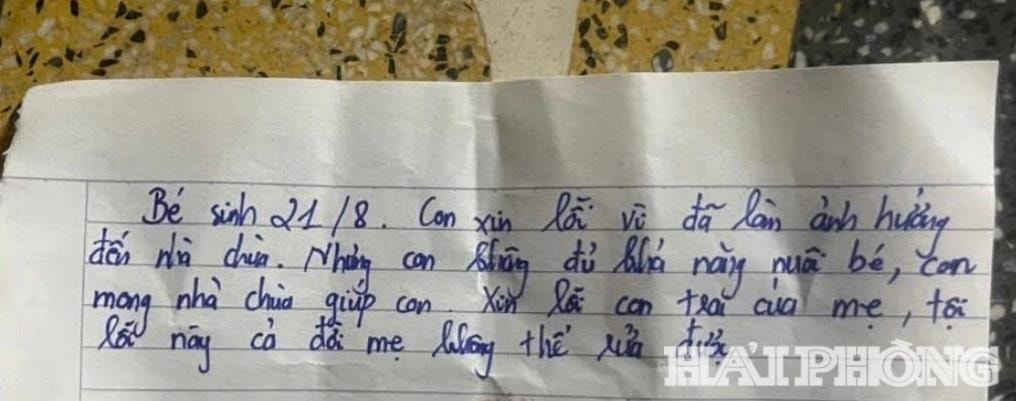 Bé sinh 21/8. Con xin lỗi vì đã làm ảnh hưởng
đến nhà chùa. Nhưng con không đủ khả năng nuôi bé, con
mong nhà chùa giúp con. Xin lỗi con trai của mẹ, tội
lỗi này cả đời mẹ không thể rửa được
HẢI PHÒNG